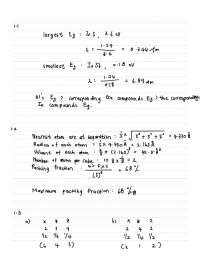 1.1
largest Eg : ZnS, 3.6 eV
λ = 1.24 / 3.6 = 0.344 μm
smallest Eg : InSb, 0.18 eV
λ = 1.24 / 0.18 = 6.89 μm
Al's Eg > corresponding Ga compounds Eg > the corresponding
In compounds Eg
1.2
Nearest atom are at separation : ½ × √5² + 5² + 5² = 4.330 Å
Radius of each atom : ½ × 4.330 Å = 2.165 Å
Volume of each atom : (2.165)³ =
Number of atoms per cube : 1 + 8 × ⅛ = 2
Packing fraction : = 68 %
Maximum packing fraction : 68 %
1.3
a) x y z b) x y z
2 3 4 2 4 2
½ ⅓ ¼ ½ ¼ ½
(6 4 3) (2 1 2)